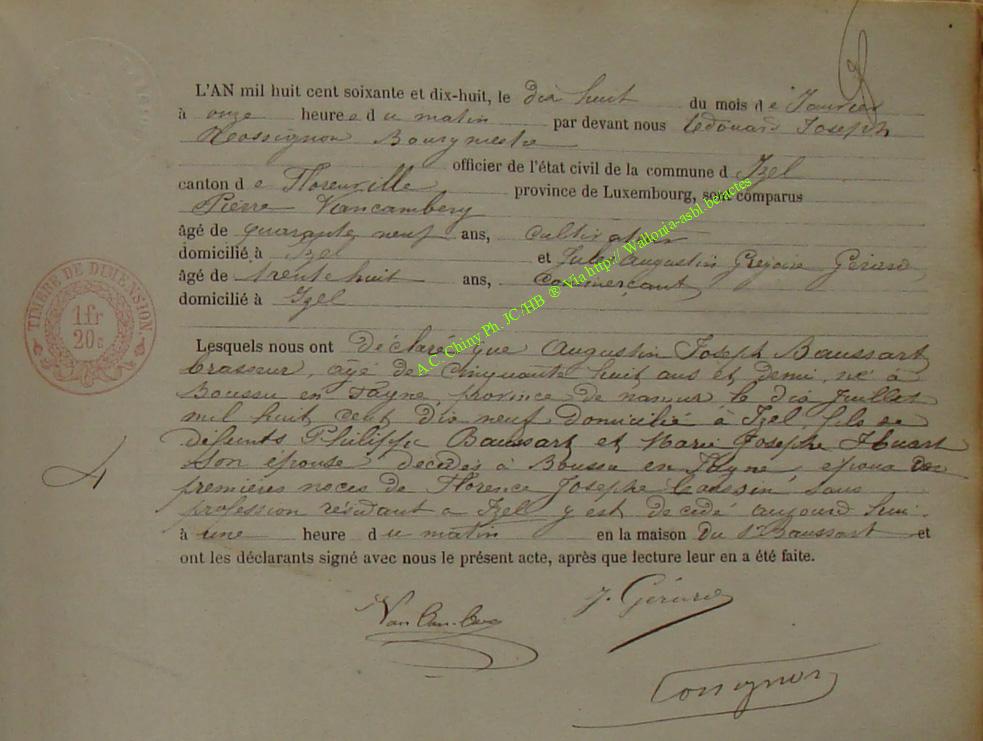 L'AN mil huit cent soixante et dix-huit, le dix huit du mois de Janvier
à onze heure e du matin par devant nous Edouard Joseph
Rossignon Bourgmestre
officier de l'état civil de la commune d Izel
canton de Florenville province de Luxembourg, sont comparus
Pierre Vancambery
âgé de quarante neuf ans, cultivateur
domicilié à Izel et Jules Augustin Grégoire Gérard
âgé de trente huit ans, commerçant
domicilié à Izel
Lesquels nous ont déclaré que Augustin Joseph Baussart
brasseur, agé de cinquante huit ans et demi, né à
Boussu en Fayne, province de namur le dix Juillet
mil huit cent dix neuf domicilié à Izel, fils de
défunts Philippe Baussart et Marie Josephe Huart
son épouse décédés à Boussu en Fayne, époux en
premières noces de Florence Josephe sans
profession résidant a Izel y est decédé aujourd hui
à une heure du matin en la maison du Sr Baussart et
ont les déclarants signé avec nous le présent acte, après que lecture leur en a été faite.
J. Gérard
Rossignon
TIMBRE DE DIMENSION
1fr
20c
A.C. Chiny Ph. JC /HB ® Via http:// Wallonia-asbl.be/actes